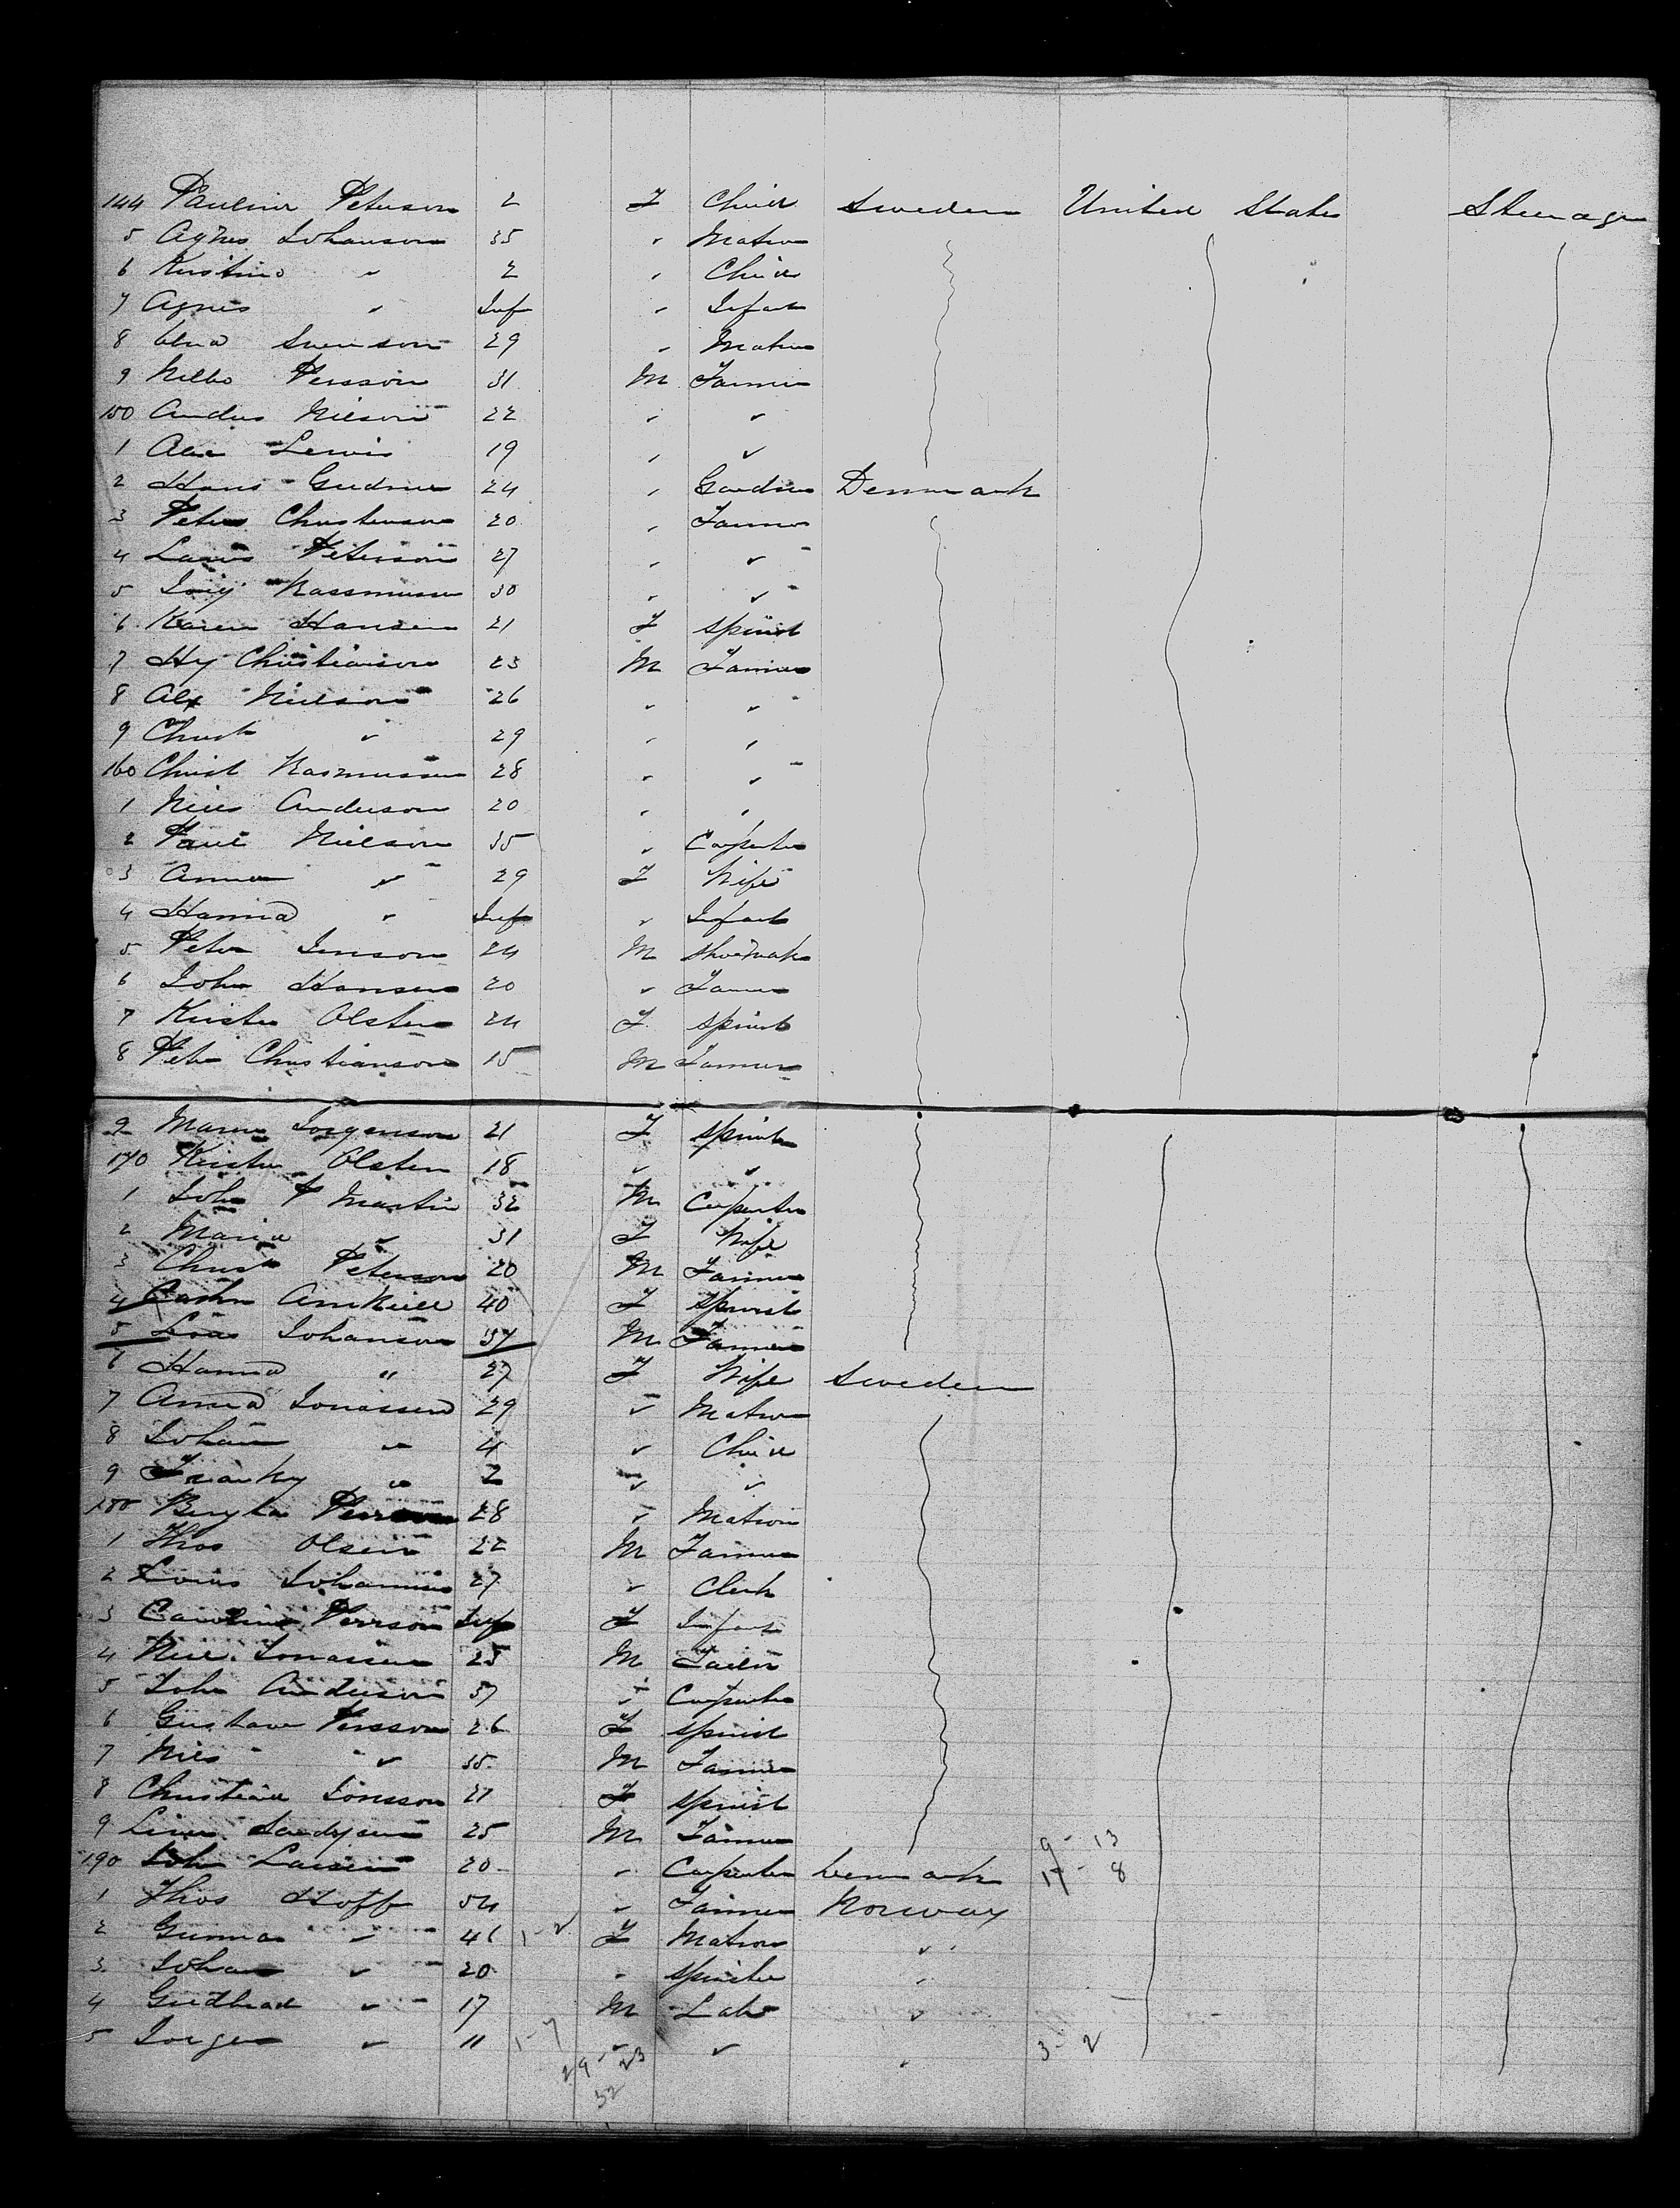 144 Pauline Peterson 2 F Child Sweden United States Steerage
5 Agnes Johanson 35 " Matron
6 Kristine " 2 " Child
7 Agnes " Inf " Infant
8 Elna Swenson 29 " Matron
9 Nelbs Persson 31 M Farmer
150 Andus Nilson 22 " "
1 Alex Lewis 19 " "
2 Hans 24 " Gardner Denmark
3 Peter Christenson 20 " Farmer
4 Lauris Peterson 27 " "
5 Rassmussen 30 " "
6 Karen Hansen 21 F Spinst
7 Hy Christianson 23 M Farmer
8 Alx Nielson 26 " "
9 Christ " 29 " "
160 Christ Rasmussen 28 " "
1 Niels Anderson 20 " "
2 Paul Nielson 35 " Carpenter
3 Anna " 29 F Wife
4 Hanna " Inf " Infant
5 Peter Jenson 24 M Shoemak
6 John Hansen 20 " Farmer
7 Kirsten Olsten 24 F Spinst
8 Peter Christianson 15 M Farmer
9 Maren Jorgenson 21 F Spinst
170 Kirsten Olsten 18 " "
1 John P Martin 32 M Carpenter
2 Maria " 31 F Wife
3 Christ Peterson 20 M Farmer
4 Cathn 40 F Spinst
5 Johanson 37 M Farmer
6 Hanna " 27 F Wife Sweden
7 Anna Jonassen 29 " Matron
8 Johan " 4 " Child
9 Franky " 2 " "
180 Bengta Persson 28 " Matron
1 Thos Olsen 22 M Farmer
2 Louis Johannsen 27 " Clerk
3 Caroline Persson Inf F Infant
4 Jonassen 25 M Tailor
5 John Anderson 37 " Carpenter
6 Gustave Persson 26 F Spinst
7 Nils " 35 M Farmer
8 Christine Jonsson 21 F Spinst
9 25 M Farmer 9 - 13
190 John Larsen 20 " Carpenter Denmark 17 - 8
1 Thos Hoff 54 " Farmer Norway
2 Gunna " 46 1-2 F Matron "
3 Johan " 20 " Spinster "
4 " 17 M Lab "
5 Jorgen " 11 1-7 " " " 3-2
29 - 23
32